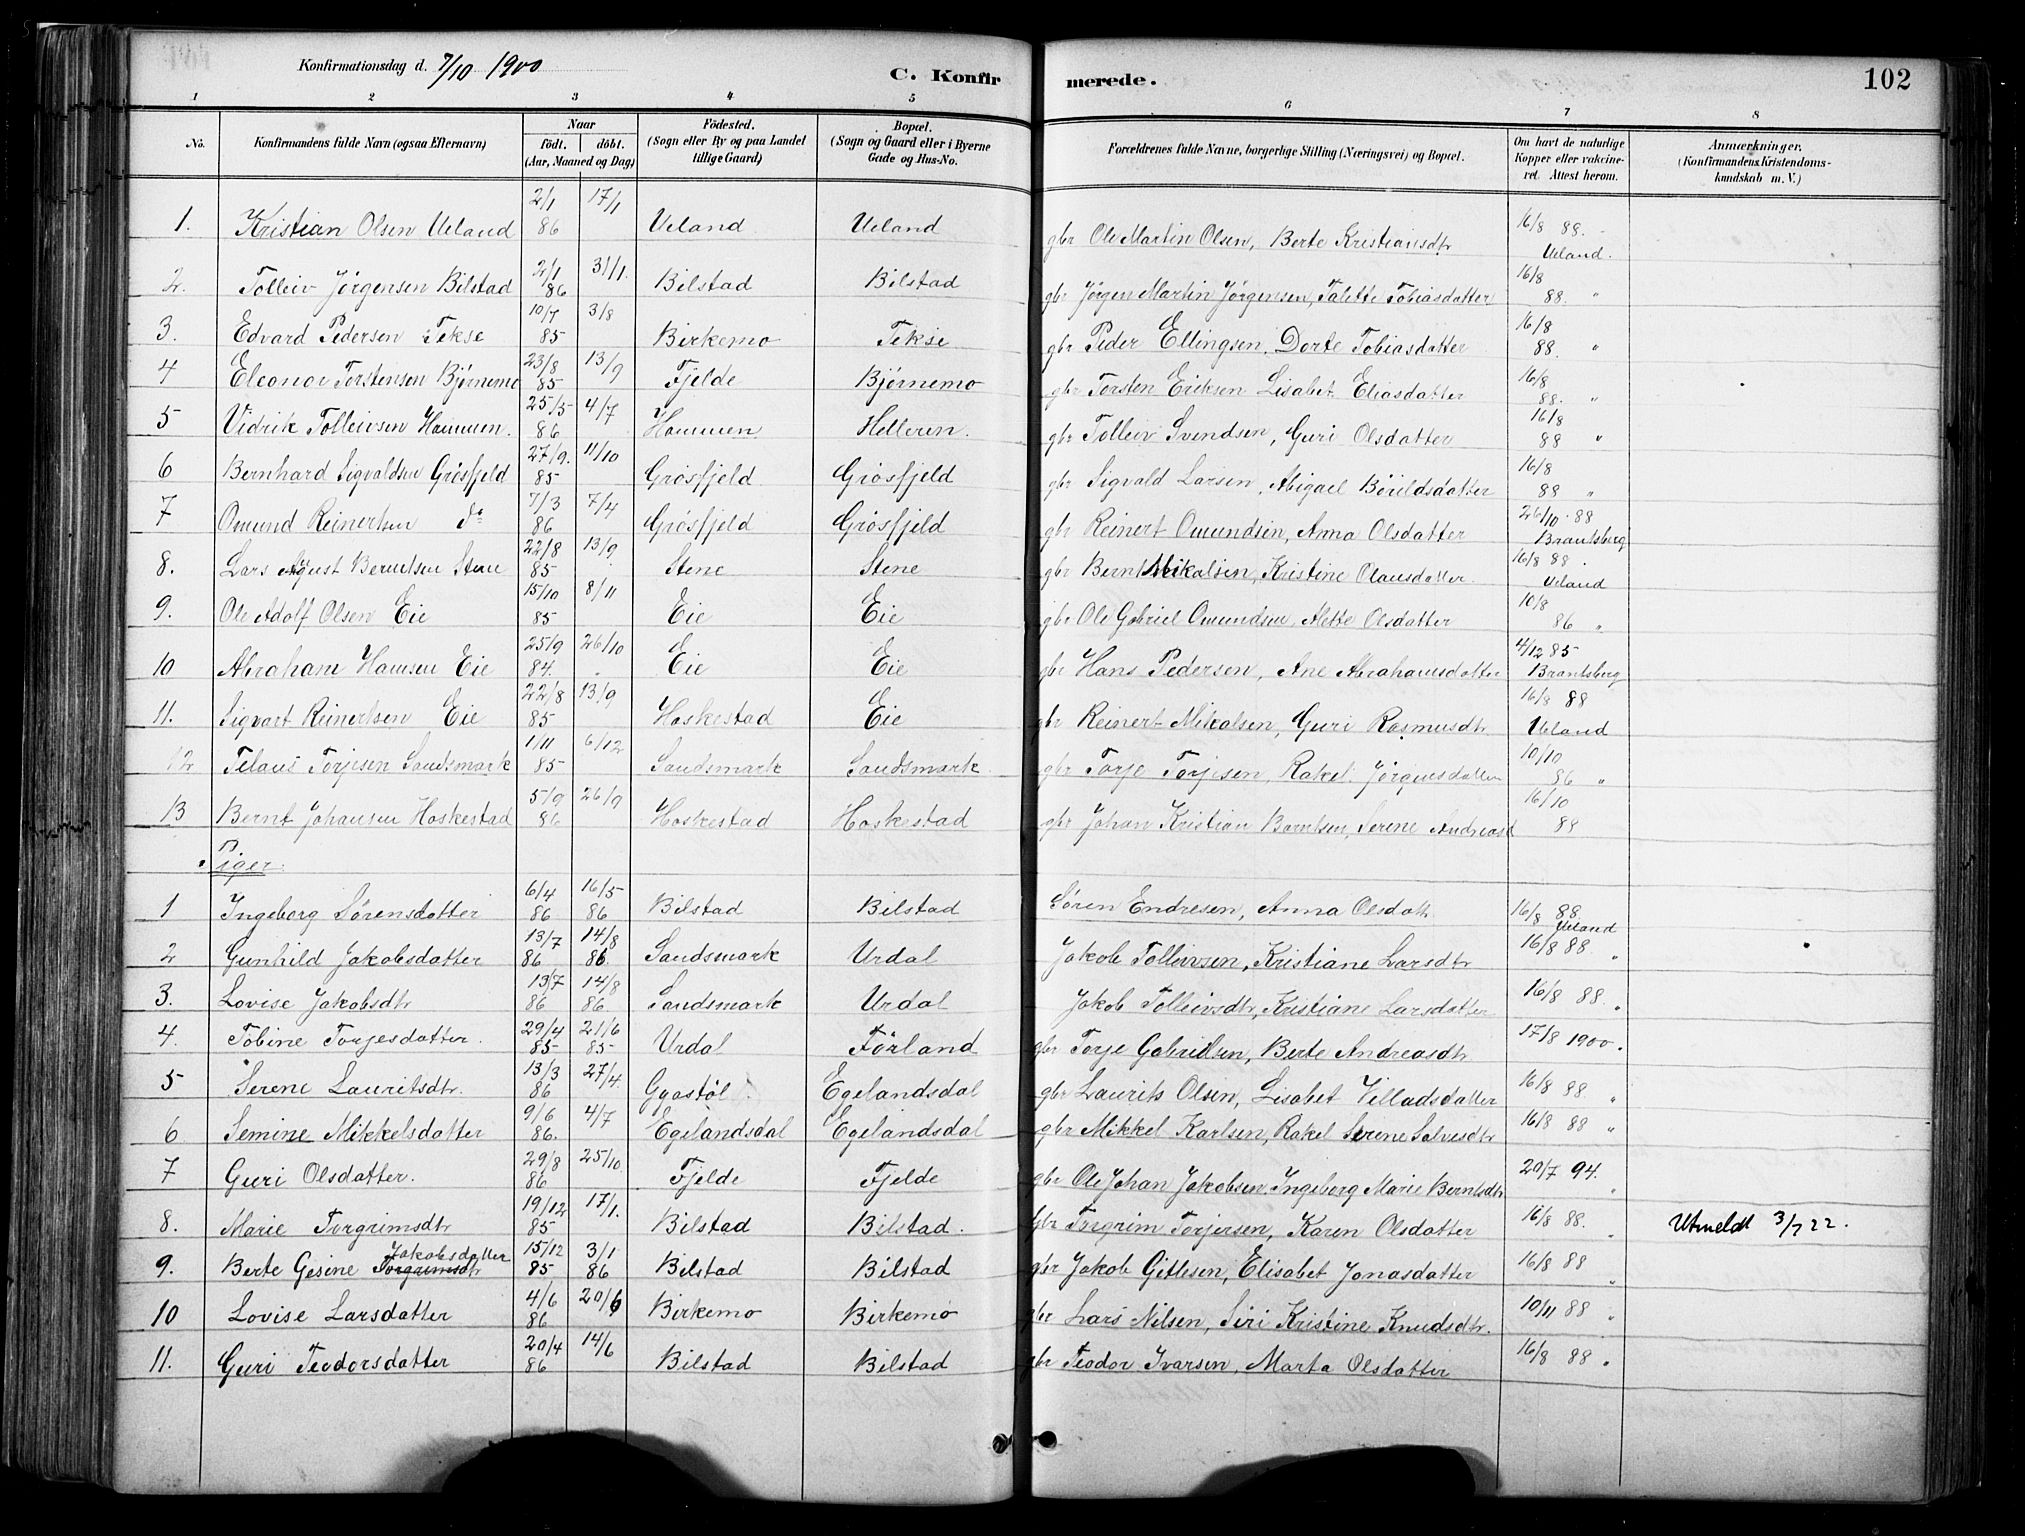 Konfirmationsdag d. 7/10 1900
C. Konfirmerede.
102
1 2 3 4 5 6 7 8
No.
Konfirmandens fulde Navn (ogsaa Efternavn)
Naar
födt. döbt.
(Aar, Maaned og Dag)
Födested.
(Sogn eller By og paa Landet tillige Gaard)
Bopæl.
(Sogn og Gaard eller i Byerne Gade og Hus-No.
Forældrenes fulde Navne, borgerlige Stilling (Næringsvei) og Bopæl.
Om havt de naturlige Kopper eller vakcineret. Attest herom.
Anmærkninger.
(Konfirmandens Kristendomskundskab m. V.)
1. Kristian Olsen Ueland 2/1 86 17/1 Ueland Ueland gbr Ole Martin Olsen, Berte Kristiansdtr 16/8 88. Ueland.
2. Tolleiv Jørgensen Bilstad 2/1 86 31/1. Bilstad Bilstad gbr Jørgen Martin Jørgensen, Talette Tobiasdatter 16/8 88. "
3. Edvard Pedersen Tekse 10/7 85 3/8 Birkemo Tekse gbr Peder Ellingsen, Dorte Tobiasdatter 16/8 88. "
4 Eleonor Torstensen Bjørnemo 23/8 85 13/9 Fjelde Bjørnemo gbr Torsten Eriksen Lisabet Eliasdatter 16/8 88. "
5 Vidrik Tolleivsen Hammen. 25/5 86 4/7 Hammen Helleren. gbr Tolleiv Svendsen, Guri Olsdatter 16/8 88 "
6 Bernhard Sigvaldsen Grøsfjeld 27/9. 85 11/10 Grøsfjeld Grøsfjeld gbr Sigvald Larsen, Abigael Børildsdatter 16/8 88 "
7 Omund Reinertsen do 7/3 86 7/4 Grøsfjeld Grøsfjeld gbr Reinert Omundsen, Anna Olsdatter 26/10 88 Brantsberg
8. Lars August Berntsen Stene 22/8 85 13/9 Stene Stene gbr Bernt Mikalsen, Kristine Olausdatter 16/8 88. Ueland
9. Ole Adolf Olsen Eie 15/10 85 8/11 Eie Eie gbr Ole Gabriel Omundsen, Mette Olsdatter 10/8 86 "
10 Abraham Hansen Eie 25/9 84. 26/10 Eie Eie gbr Hans Pedersen, Ane Abrahamsdatter 4/12 85 Brantsberg
11. Sigvart Reinertsen Eie 22/8 85 13/9 Hoskestad Eie gbr Reinert Mikalsen, Guri Rasmusdtr 16/8 88 Ueland
12 Tilaus Torjesen Sandsmark 1/11 85 6/12 Sandsmark Sandsmark gbr Torje Torjesen, Rakel Jørgensdatter 10/10 86 "
13 Bernt Johansen Hoskestad 5/9 86 26/9 Hoskestad Hoskestad gbr Johan Kristian Berntsen, Serene Andreasd 16/10 88
Piger.
1 Ingeborg Sørensdatter 6/4 86 16/5 86 Bilstad Bilstad Søren Endresen, Anna Olsdatr. 16/8 88 Ueland
2 Gunhild Jakobsdatter 13/7 86 14/8 86 Sandsmark Urdal Jakob Tolleivsen, Kristiane Larsdtr 16/8 88 "
3. Lovise Jakobsdtr 13/7 86 14/8 86 Sandsmark Urdal Jakob Tolleivsdtr, Kristiane Larsdatter 16/8 88. "
4. Tobine Torjesdatter. 29/4 85 21/6 85 Urdal Førland gbr Torje Gabrielsen, Berte Andreasdtr 17/8 1900.
5 Serene Lauritsdtr. 13/3 86 27/4. Gyastøl Egelandsdal gbr Laurits Olsen, Lisabet Villadsdatter 16/8 88 "
6 Semine Mikkelsdatter 9/6 86. 4/7 Egelandsdal Egelandsdal gbr Mikkel Karlsen, Rakel Serene Salvesdtr 16/8 88 "
7 Guri Olsdatter. 29/8 86 25/10. Fjelde Fjelde gbr Ole Johan Jakobsen, Ingeborg Marie Berntsdtr 20/7 94. "
8. Marie Torgrimsdtr 19/12 85 17/1. Bilstad Bilstad. gbr Torgrim Torjersen, Karen Olsdatter 16/8 88. " Utmeldt 3/7 22.
9. Berte Gesine Torgrimsdtr Jakobsdatter 15/12 85 3/1 86 Bilstad Bilstad gbr Jakob Gitlesen, Elisabet Jonasdatter 16/8 88 "
10 Lovise Larsdatter 4/6 86 20/6 Birkemo Birkemo gbr Lars Nilsen, Siri Kristine Knudsdtr. 10/11 88 "
11. Guri Teodorsdatter 20/4 86 14/6 Bilstad Bilstad gbr Teodor Ivarsen, Marta Olsdatter 16/8 88 "